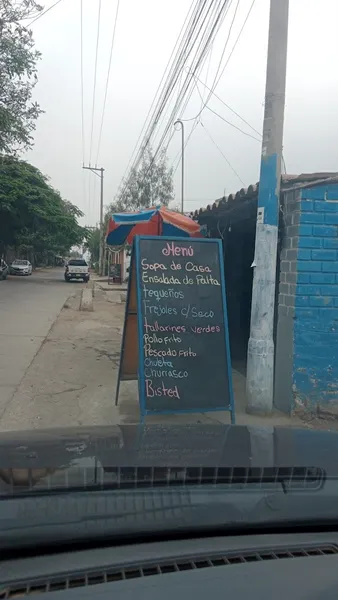 Menú
Sopa de Casa
Ensalada de Palta
Tequeños
Frejoles c/Seco
Tallarines verdes
Pollo frito
Pescado frito
Chuleta
Churrasco
Bisted